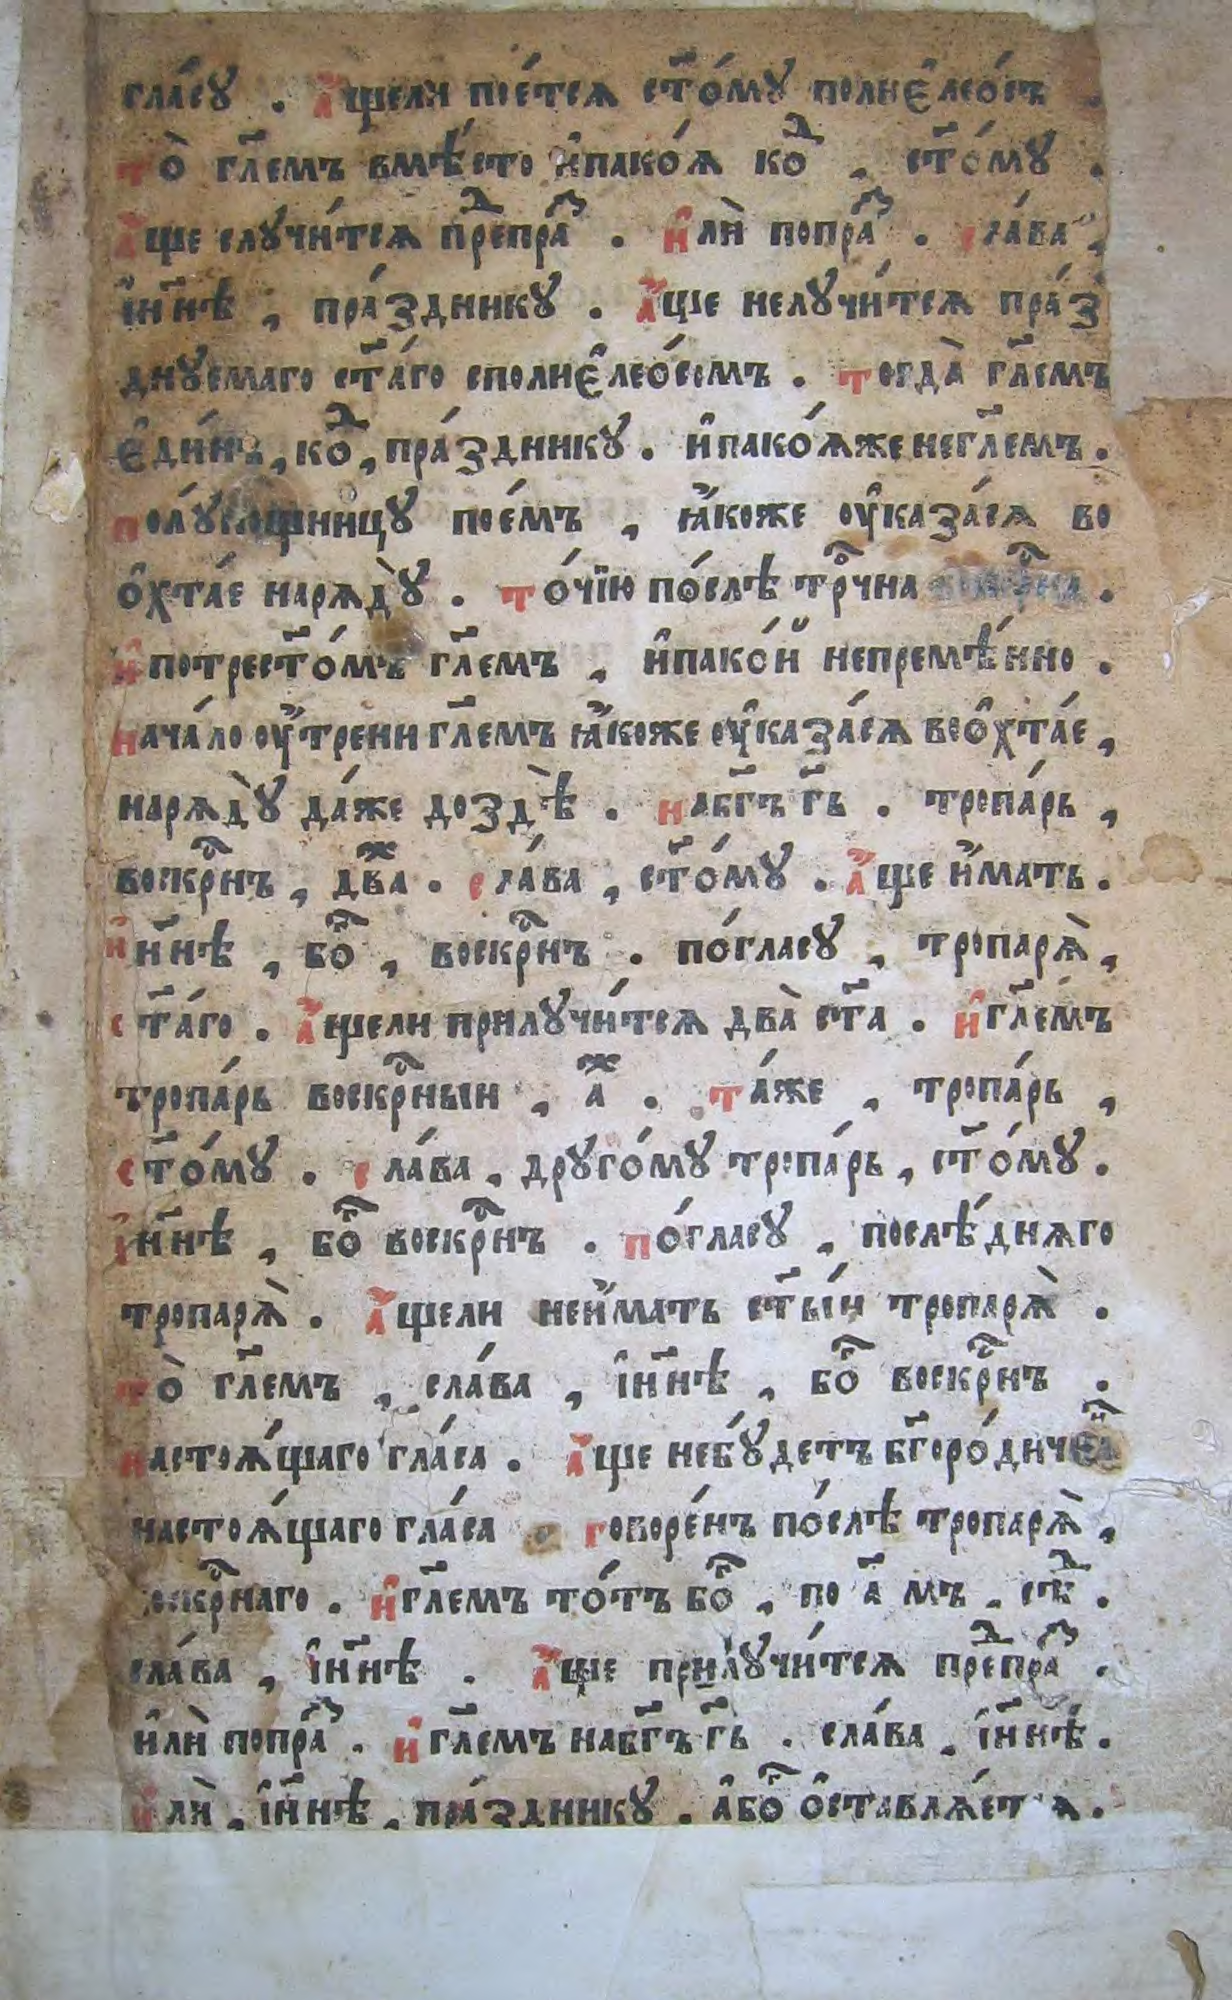 гла́сꙋ . А҆́щели пое́тсѧ ст҃о́мꙋ полиєле́ѡсъ .
то̀ гл҃емъ вмѣ́сто и҆пакоѧ̀ коⷣ , ст҃о́мꙋ .
А҆́ще случи́тсѧ преⷣпраⷥ . И҆лѝ попраⷥ . сла́ва ,
і҆ н҃нѣ , пра́зднику . А҆́ще нелучи́тсѧ пра́з
днꙋемаго ст҃а́го сполиє҆лео́сомъ . тогда̀ гл҃емъ
є҆ди́нъ , коⷣ , пра́зднику . и҆пако́ѧже негл҃емъ .
полꙋ́нощницꙋ пое́мъ , ꙗ҆́коже ѹ҆каза́сѧ во
о҆хта́е нарѧдꙋ̀ . то́чїю по́слѣ трⷪ҇чна
и҆ потрест҃о́мъ гл҃емъ , и҆пако́й непремѣ́нно .
нача́ло ѹ҆́трени гл҃емъ ꙗ҆́коже ѹ҆каза́сѧ воо҆хта́е ,
нарѧдꙋ̀ да́же доздѣ̀ . набг҃ъ гь҃ . тропа́рь ,
воскрⷭ҇нъ , два́ⷤ . сла́ва , ст҃о́мꙋ . А҆́ще и҆́мать .
И҆ н҃нѣ , боⷢ҇ , воскрⷭ҇нъ . по́гласꙋ , тропарѧ̀ ,
ст҃а́го . А҆́щели прилꙋчи́тсѧ два̀ ст҃а . и҆ гл҃е́мъ
тропа́рь воскрⷭ҇ныи , аⷤ . та́же , тропа́рь ,
ст҃о́мꙋ . сла́ва , дрꙋго́мꙋ тропа́рь , ст҃о́мꙋ .
і҆ н҃нѣ , боⷢ҇ воскрⷭ҇нъ . по́гласꙋ , послѣ́днѧго
тропарѧ̀ . А҆́щели неи҆́мать ст҃ы́и тропарѧ̀ .
то̀ гл҃емъ , сла́ва , і҆ н҃нѣ , боⷢ҇ воскрⷭ҇нъ .
настоѧ́щаго гла́са . А҆́ще небꙋ́детъ бг҃оро́дичен
настоѧ́щаго гла́са . говоре́нъ по́слѣ тропарѧ̀ ,
воскрⷭ҇наго . и҆ гл҃емъ то́тъ боⷢ҇ , по а҃ мъ , сѣⷣ .
сла́ва , і҆ н҃нѣ . А҆́ще прилꙋчи́тсѧ преⷣпраⷥ .
и҆лѝ попраⷥ . и҆ гл҃емъ набг҃ъ гь҃ . сла́ва , і҆ н҃нѣ .
И҆лѝ , і҆ н҃нѣ , пра́зднику . а҆боⷢ҇ ѡ҆ставлѧ́етсѧ .